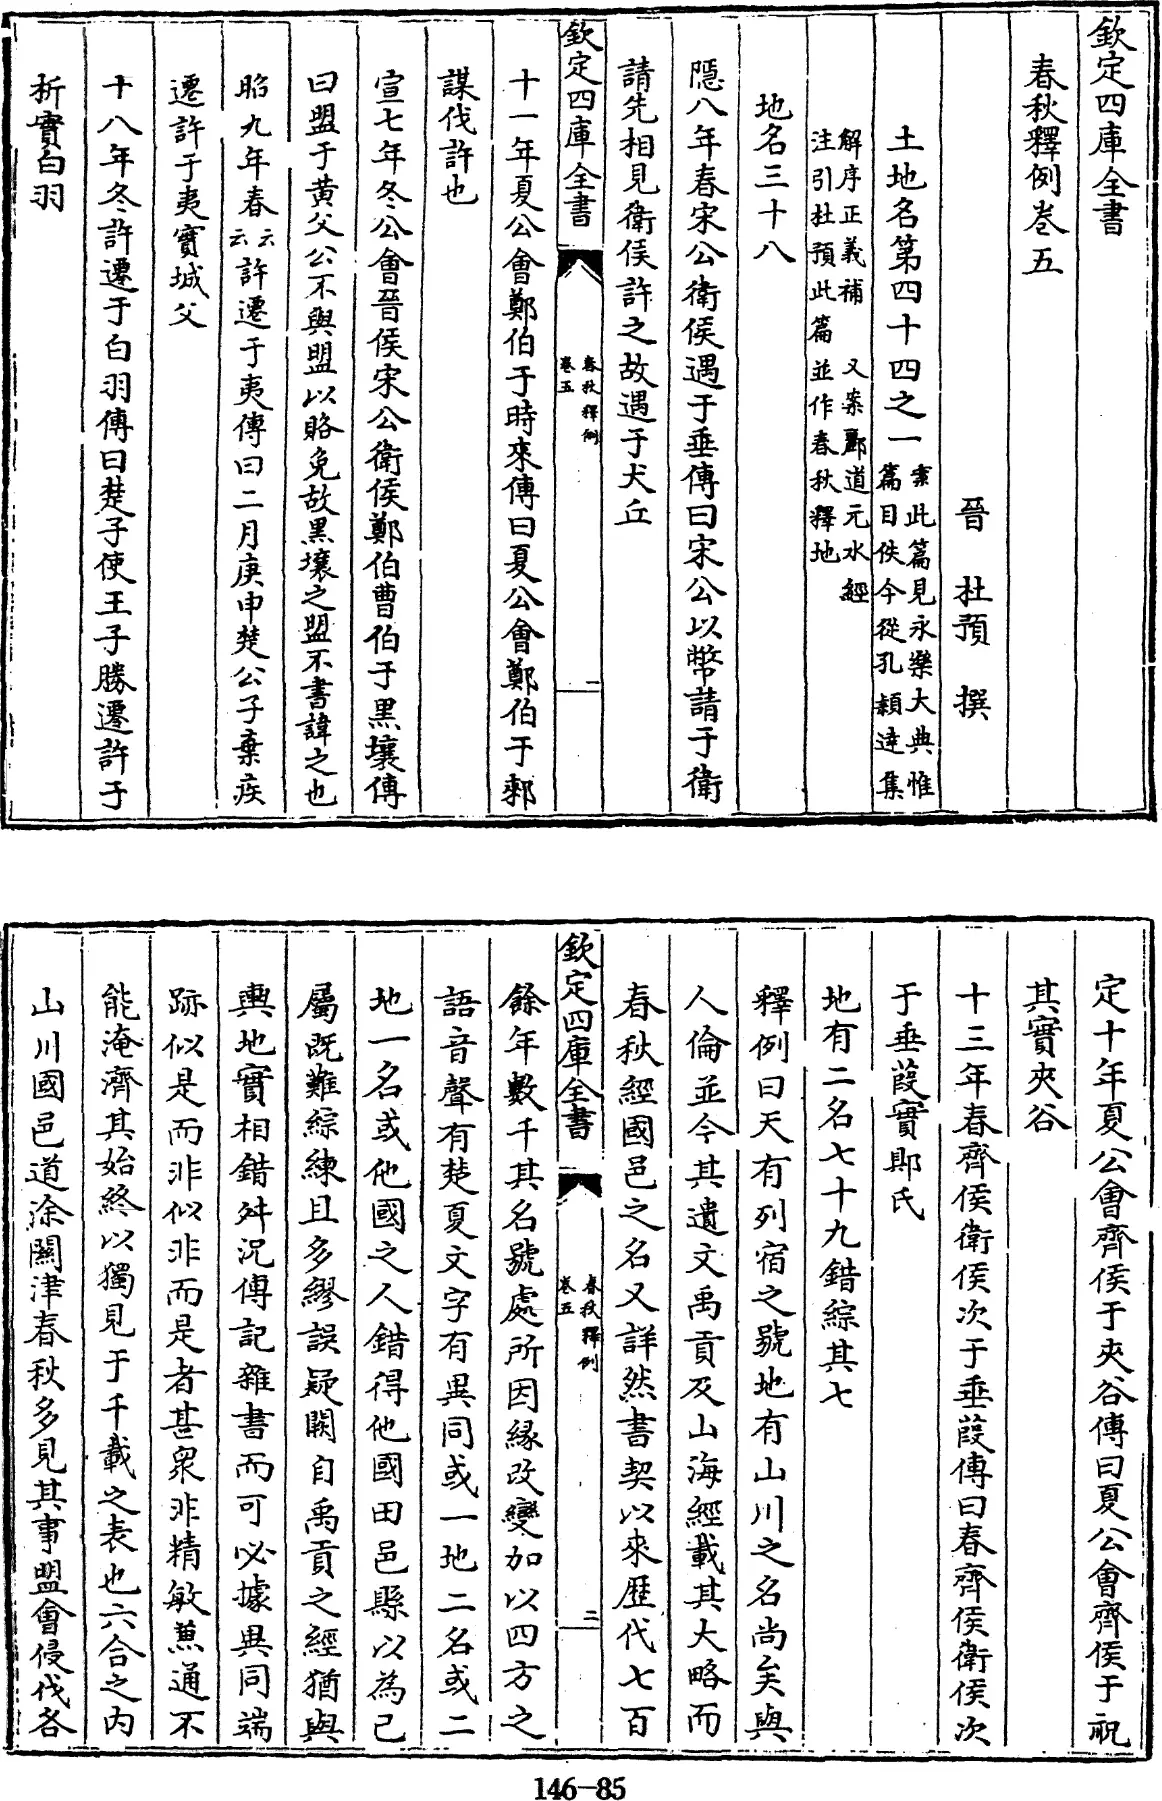 欽定四庫全書
春秋釋例卷五
晉 杜預 撰
土地名第四十四之一 案此篇見永樂大典惟
篇目佚今從孔穎達集
解序正義補 又案酈道元水經
注引杜預此篇並作春秋釋地
地名三十八
隱八年春宋公衛侯遇于垂傳曰宋公以幣請于衛
請先相見衛侯許之故遇于犬丘
欽定四庫全書
春秋釋例
卷五
一
十一年夏公會鄭伯于時來傳曰夏公會鄭伯于郲
謀伐許也
宣七年冬公會晉侯宋公衛侯鄭伯曹伯于黑壤傳
曰盟于黃父公不與盟以賂免故黑壤之盟不書諱之也
昭九年春云云許遷于夷傳曰二月庚申楚公子棄疾
遷許于夷實城父
十八年冬許遷于白羽傳曰楚子使王子勝遷許于
析實白羽
定十年夏公會齊侯于夾谷傳曰夏公會齊侯于祝
其實夾谷
十三年春齊侯衛侯次于垂葭傳曰春齊侯衛侯次
于垂葭實郹氏
地有二名七十九錯綜其七
釋例曰天有列宿之號地有山川之名尚矣與
人倫並今其遺文禹貢及山海經載其大略而
春秋經國邑之名又詳然書契以來歷代七百
欽定四庫全書
春秋釋例
卷五
二
餘年數千其名號處所因緣改變加以四方之
語音聲有楚夏文字有異同或一地二名或二
地一名或他國之人錯得他國田邑縣以為己
屬既難綜練且多繆誤疑闕自禹貢之經猶與
輿地實相錯舛況傳記雜書而可必據異同端
跡似是而非似非而是者甚衆非精敏兼通不
能淹濟其始終以獨見于千載之表也六合之內
山川國邑道涂關津春秋多見其事盟會侵伐各
146-85